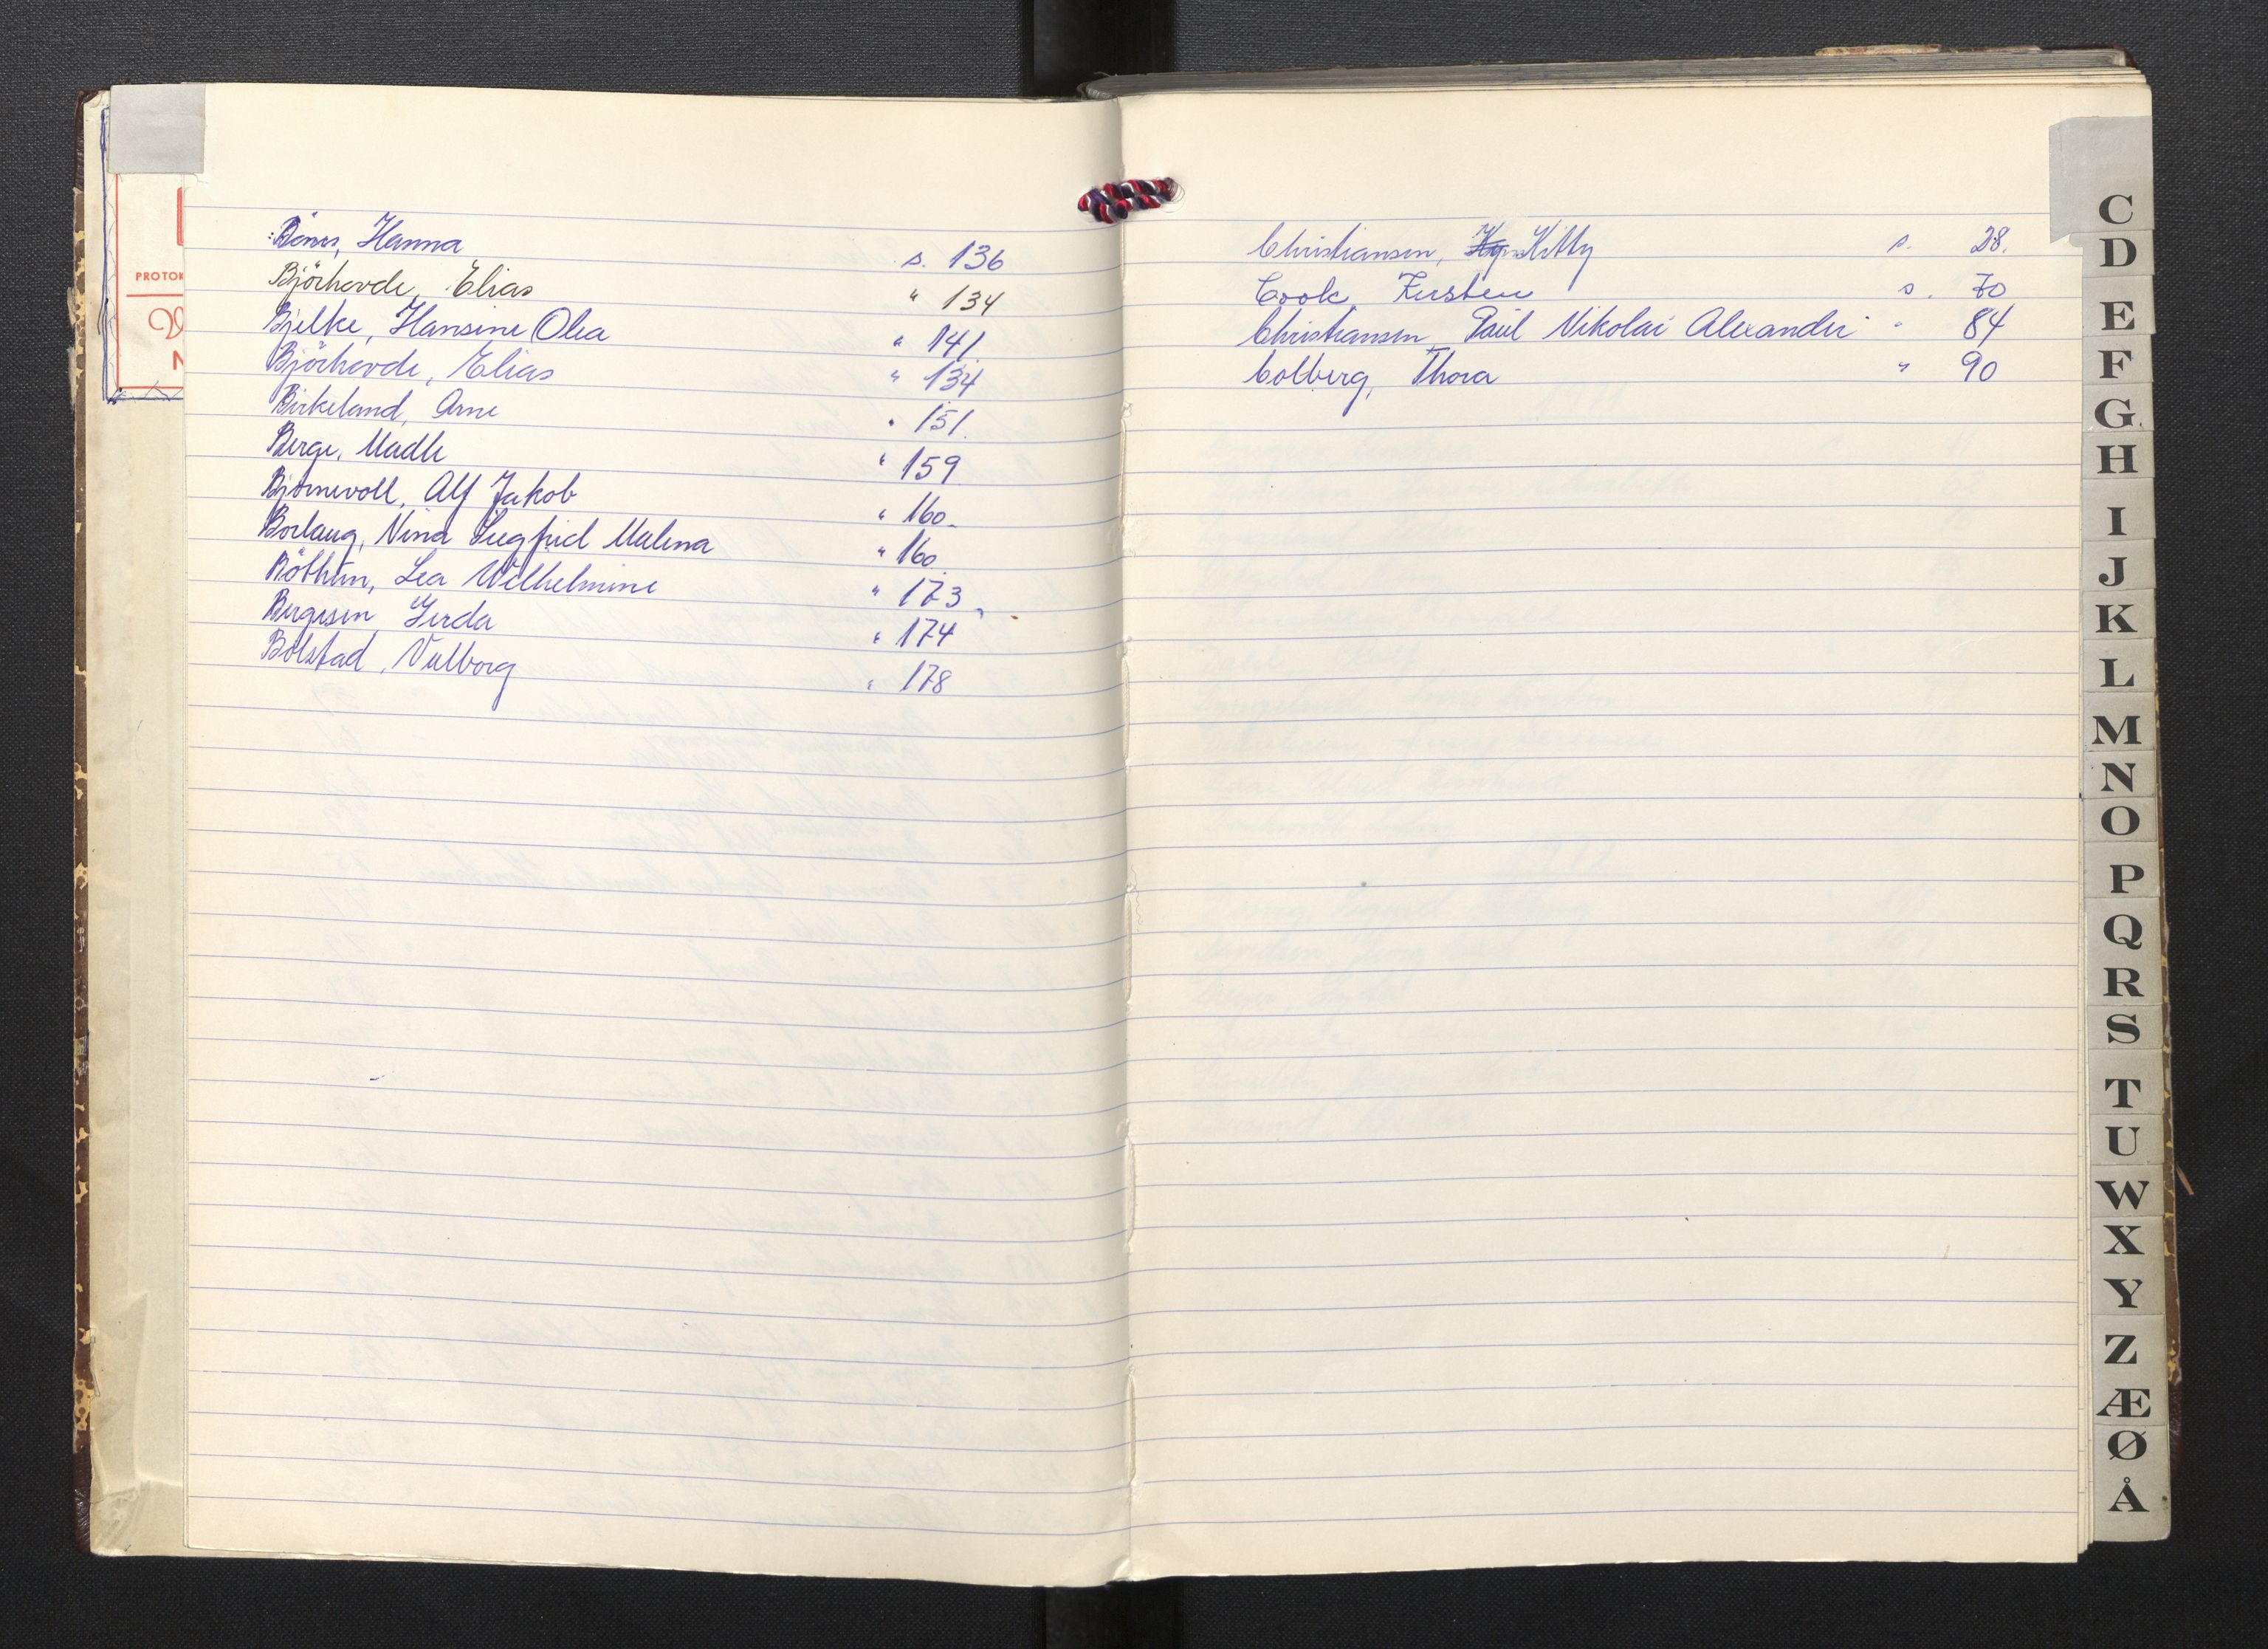 PROTOK
N
Bönes, Hanna s. 136
Björhovde, Elias " 134
Bjelke, Hansine Olea " 141.
Björhovde, Elias " 134
Birkeland, Arne " 151.
Berge, Madli " 159
Bjørnevoll, Alf Jakob " 160
Borlaug, Nina Siegfrid Malena " 160
Böthun, Lea Wilhelmine " 173
Bergesen Gerda " 174
Bolstad, Valborg " 178
Christiansen, Kitty s. 28.
Cook, Kirsten s. 70
Christiansen, Paul Nikolai Alexander " 84
Colberg, Thora " 90
C
D
E
F
G
H
I
J
K
L
M
N
O
P
Q
R
S
T
U
W
X
Y
Z
Æ
Ø
Å